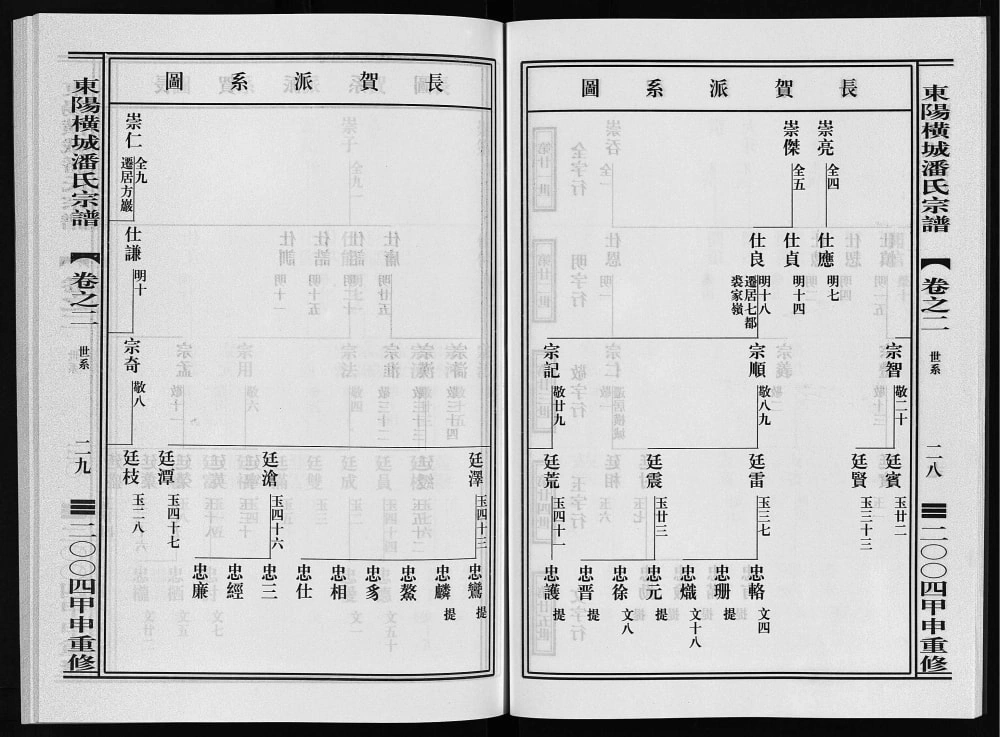 東陽橫城潘氏宗譜
卷之二
世系
二八
二〇〇四甲申重修
長賀派系圖
崇亮 全四
崇傑 全五
仕應 明七
仕貞 明十四
仕良 明十八
遷居七都
裘家嶺
宗智 敬二十
宗順 敬八九
宗記 敬廿九
廷賓 玉廿二
廷賢 玉三十三
廷雷 玉三七
廷震 玉廿三
廷荒 玉四十一
忠輅 文四
忠珊 提
忠熾 文十八
忠元 提
忠徐 文八
忠晋 提
忠護 提
長賀派系圖
崇仁 全九
遷居方巖
仕謙 明十
宗奇 敬八
廷澤 玉四十三
廷滄 玉四十六
廷潭 玉四十七
廷枝 玉二八
忠鸞 提
忠麟 提
忠鰲
忠豸
忠相
忠仕
忠三
忠經
忠廉
東陽橫城潘氏宗譜
卷之二
世系
二九
二〇〇四甲申重修